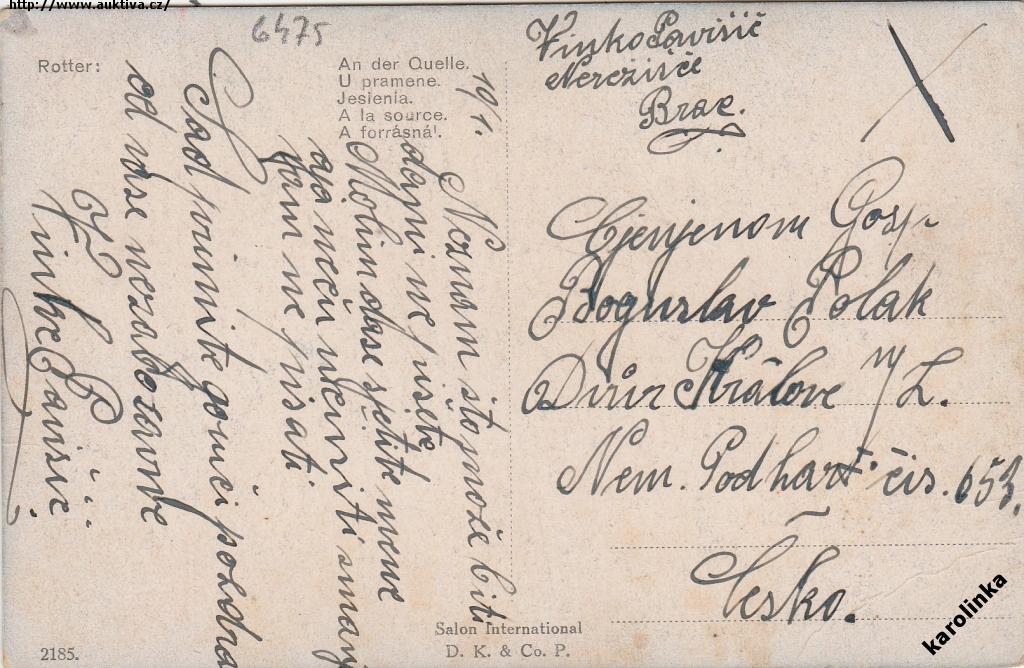 http://www.auktiva.cz/
6475
Rotter:
An der Quelle.
U pramene.
Jesienia.
A la source.
A forrásnál.
19/1.
Neznam što može biti
da mi ne pišete
Molim da se sjetite mene
a ja neću učiniti
Vam ne pisati
Sad primite gorući pozdrav
od vaše nezaboravne
Vinke Pavišić
Vinko Pavišić
Nerežišće
Brač.
Cjenjenom Gosp.
Boguslav Polak
Dvůr Králove n/L.
Nem. Podhart čis. 653.
Česko.
Salon International
D. K. & Co. P.
2185.
karolinka